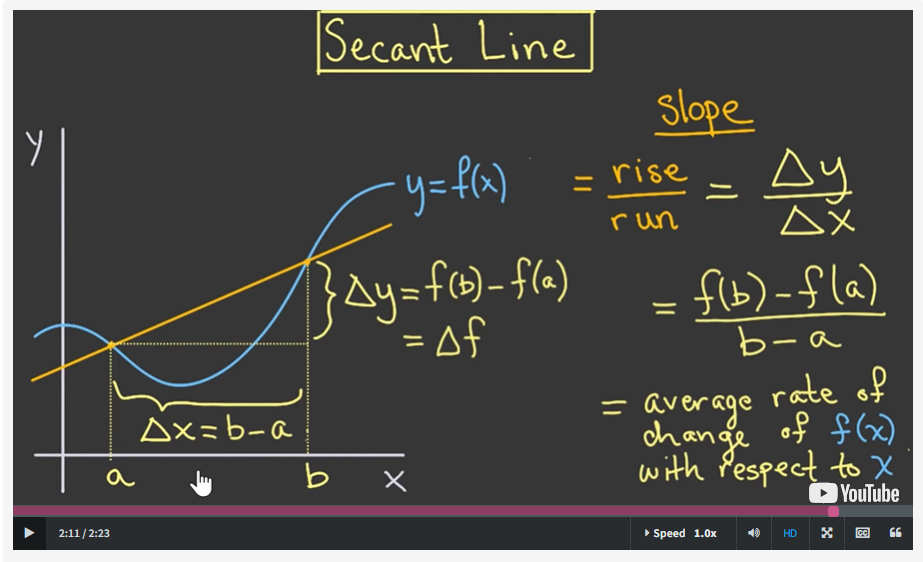 Secant Line
y
y=f(x)
Δy=f(b)-f(a)
=Δf
Δx=b-a
a
b
x
Slope
= rise/run = Δy/Δx
= f(b)-f(a)/b-a
= average rate of
change of f(x)
with respect to x
YouTube
2:11 / 2:23
Speed 1.0x
HD
CC